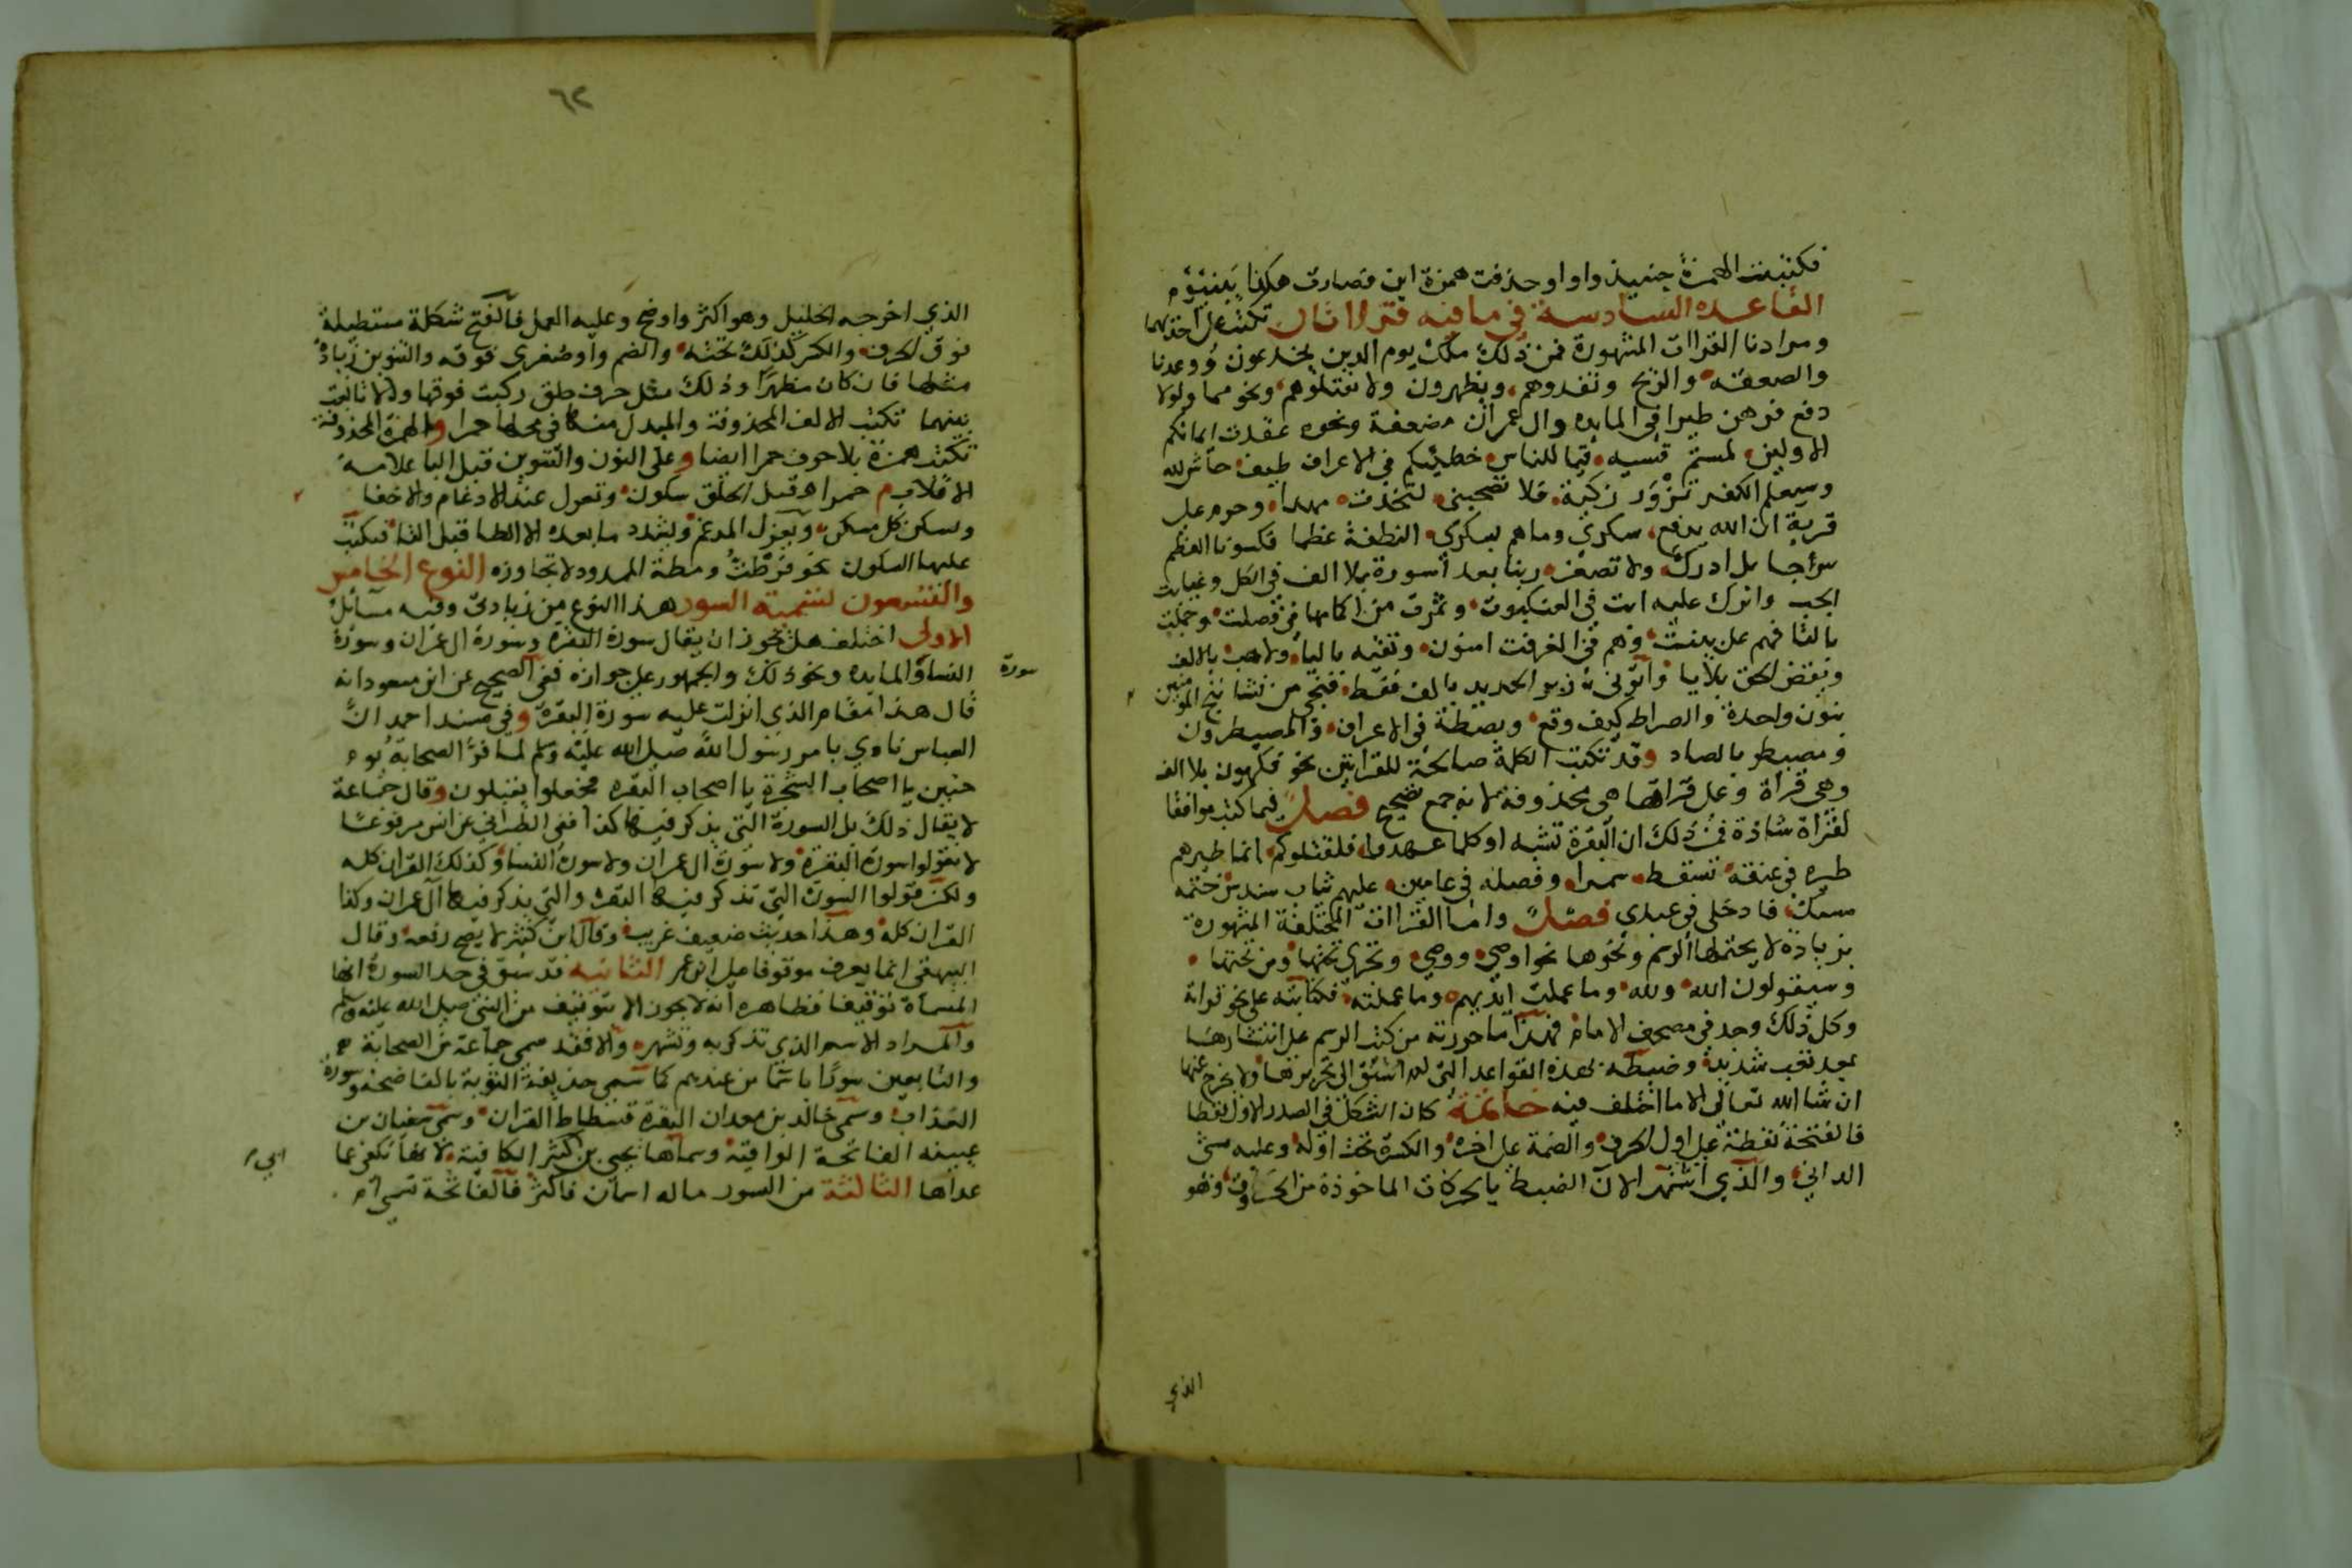 فكتبت الهمزة حينيذ واوا وحذفت همزة ابن فصارت هكذا يبنؤم
القاعدة السادسة في ما فيه قراتان تكتب على احدهما
ومرادنا القراات المشهورة فمن ذلك ملك يوم الدين يخدعون ووعدنا
والصعقة والريح وتفدوهم وتظهرون ولا تقتلوهم ونحوهما ولولا
دفع فرهن طيرا في المايده وال عمران مضعفة ونحوه عقدت ايمانكم
الاولين لمستم قسيه قيما للناس خطيئتكم في الاعراف طيف حاش لله
وسيعلم الكفر تزور زكية فلا تصحبني لتخذت مهدا وحرم على
قرية ان الله يدفع سكرى وما هم بسكرى النطفة عظما فكسونا العظم
سرجا بل ادرك ولا تصعر ربنا بعد أسورة بلا الف في الكل وغيابت
الجب وانزل عليه ايت في العنكبوت وثمرت من اكمامها في فصلت وجملت
بالتا فهم على بينت وهم في الغرفت امنون وتقيه باليا ولاهب بالالف
ويقض الحق بلا يا واتوني زبر الحديد بالف فقط فنجي من نشا ننج المؤمنين
بنون واحدة والصراط كيف وقع وبصطة في الاعراف والمصيطرون
ومصيطر بالصاد وقد تكتب الكلمة صالحة للقراتين نحو فكهون بلا الف
وهي قراة وعلى قراتها هي محذوفة لانه جمع تصحيح فصل فيما كتب موافقا
لقراة شاذة فمن ذلك ان البقرة تشبه او كلما عهدوا فلقتلوكم انما طيرهم
طيره في عنقه تسقط سمرا وفصله في عامين عليهم ثياب سندس ختمه
مسك فادخلي في عبدي فصل واما القراات المختلفة المشهورة
بزيادة لا يحتملها الرسم ونحوها نحو اوصى ووصى وتجري تحتها ومن تحتها
وسيقولون الله ولله وما عملت ايديهم وما عملته فكتابته على نحو قراته
وكل ذلك وجد في مصحف الامام فهذا ما حررته من كتب الرسم على انتشارها
بعد تعب شديد وضبطه بهذه القواعد التي لم اسبق الى تحريرها ولا يخرج عنها
ان شا الله تعالى الا ما اختلف فيه خاتمة كان الشكل في الصدر الاول نقطا
فالفتحة نقطة على اول الحرف والضمة على اخره والكسرة تحت اوله وعليه مشى
الداني والذي اشتهر الان الضبط بالحركات الماخوذة من الحروف وهو
الذي
٦٢
الذي اخرجه الخليل وهو اكثر واوضح وعليه العمل فالفتح شكلة مستطيلة
فوق الحرف والكسر كذلك تحته والضم واو صغرى فوقه والتنوين زيادة
مثلها فان كان مظهرا وذلك مثل حرف حلق ركبت فوقها والا تابعت
بينهما تكتب الالف المحذوفة والمبدل منها في محلها حمرا والهمزة المحذوفة
تكتب همزة بلا حرف حمرا ايضا وعلى النون والتنوين قبل البا علامة
الاقلاب م حمرا وقبل الحلق سكون وتعرى عند الادغام والاخفا
ويسكن كل مسكن ويعرى المدغم ويشدد ما بعده الا الطا قبل التا فيكتب
عليها السكون نحو فرطت ومطة الممدود لا تجاوزه النوع الخامس
والتسعون تسمية السور هذا النوع من زيادتي وفيه مسائل
الاولى اختلف هل يجوز ان يقال سورة البقرة وسورة ال عمران وسورة
النسا والمايده ونحو ذلك والجمهور على جوازه ففي الصحيح عن ابن مسعود انه
سورة
قال هذا مقام الذي انزلت عليه سورة البقرة وفي مسند احمد ان
العباس نادى بامر رسول الله صلى الله عليه وسلم لما فر الصحابة يوم
حنين يا اصحاب الشجرة يا اصحاب البقرة فجعلوا يقبلون وقال جماعة
لا يقال ذلك بل السورة التي يذكر فيها كذا ففي الطبراني عن انس مرفوعا
لا تقولوا سورة البقرة ولا سورة ال عمران ولا سورة النسا وكذلك القران كله
ولكن قولوا السورة التي تذكر فيها البقرة والتي يذكر فيها آل عمران وكذا
القران كله وهذا حديث ضعيف غريب وقال ابن كثير لا يصح رفعه وقال
البيهقي انما يعرف موقوفا على ابن عمر الثانيه قد سبق في حد السورة انها
المسماة توقيفا فظاهره انه لا يجوز الا بتوقيف من النبي صلى الله عليه وسلم
والمراد الاسم الذي تذكر به وتشهر والا فقد سمى جماعة من الصحابة
والتابعين سورا باسما من عندهم كما سمى حذيفة التوبة بالفاضحة وسورة
العذاب وسمى خالد بن معدان البقرة فسطاط القران وسمى سفيان بن
عيينه الفاتحة الواقية وسماها يحيى بن كثير الكافية لانها تكفي عما
ابي
عداها الثالثة من السور ماله اسمان فاكثر فالفاتحة تسمى ام